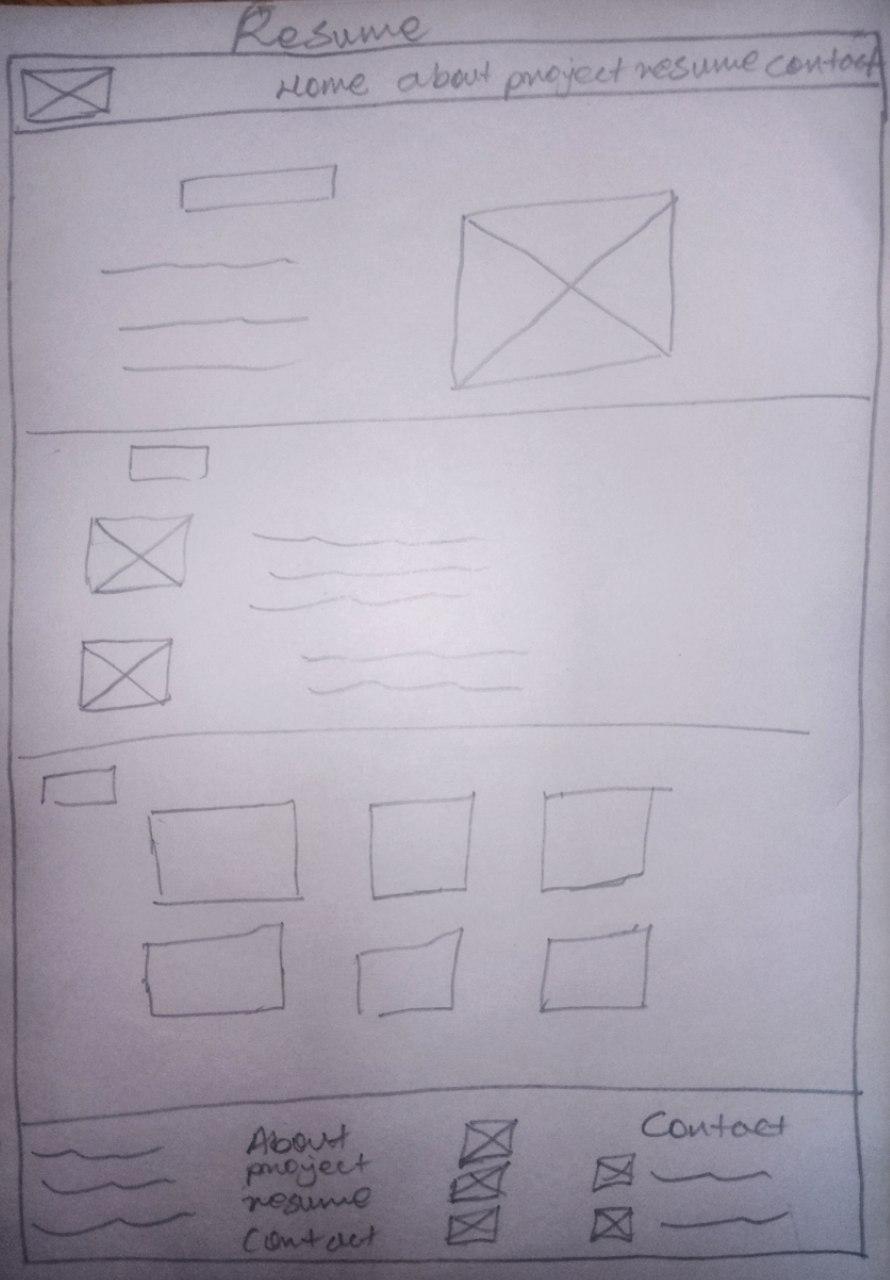 Resume
Home about project resume contact
About
project
resume
Contact
Contact